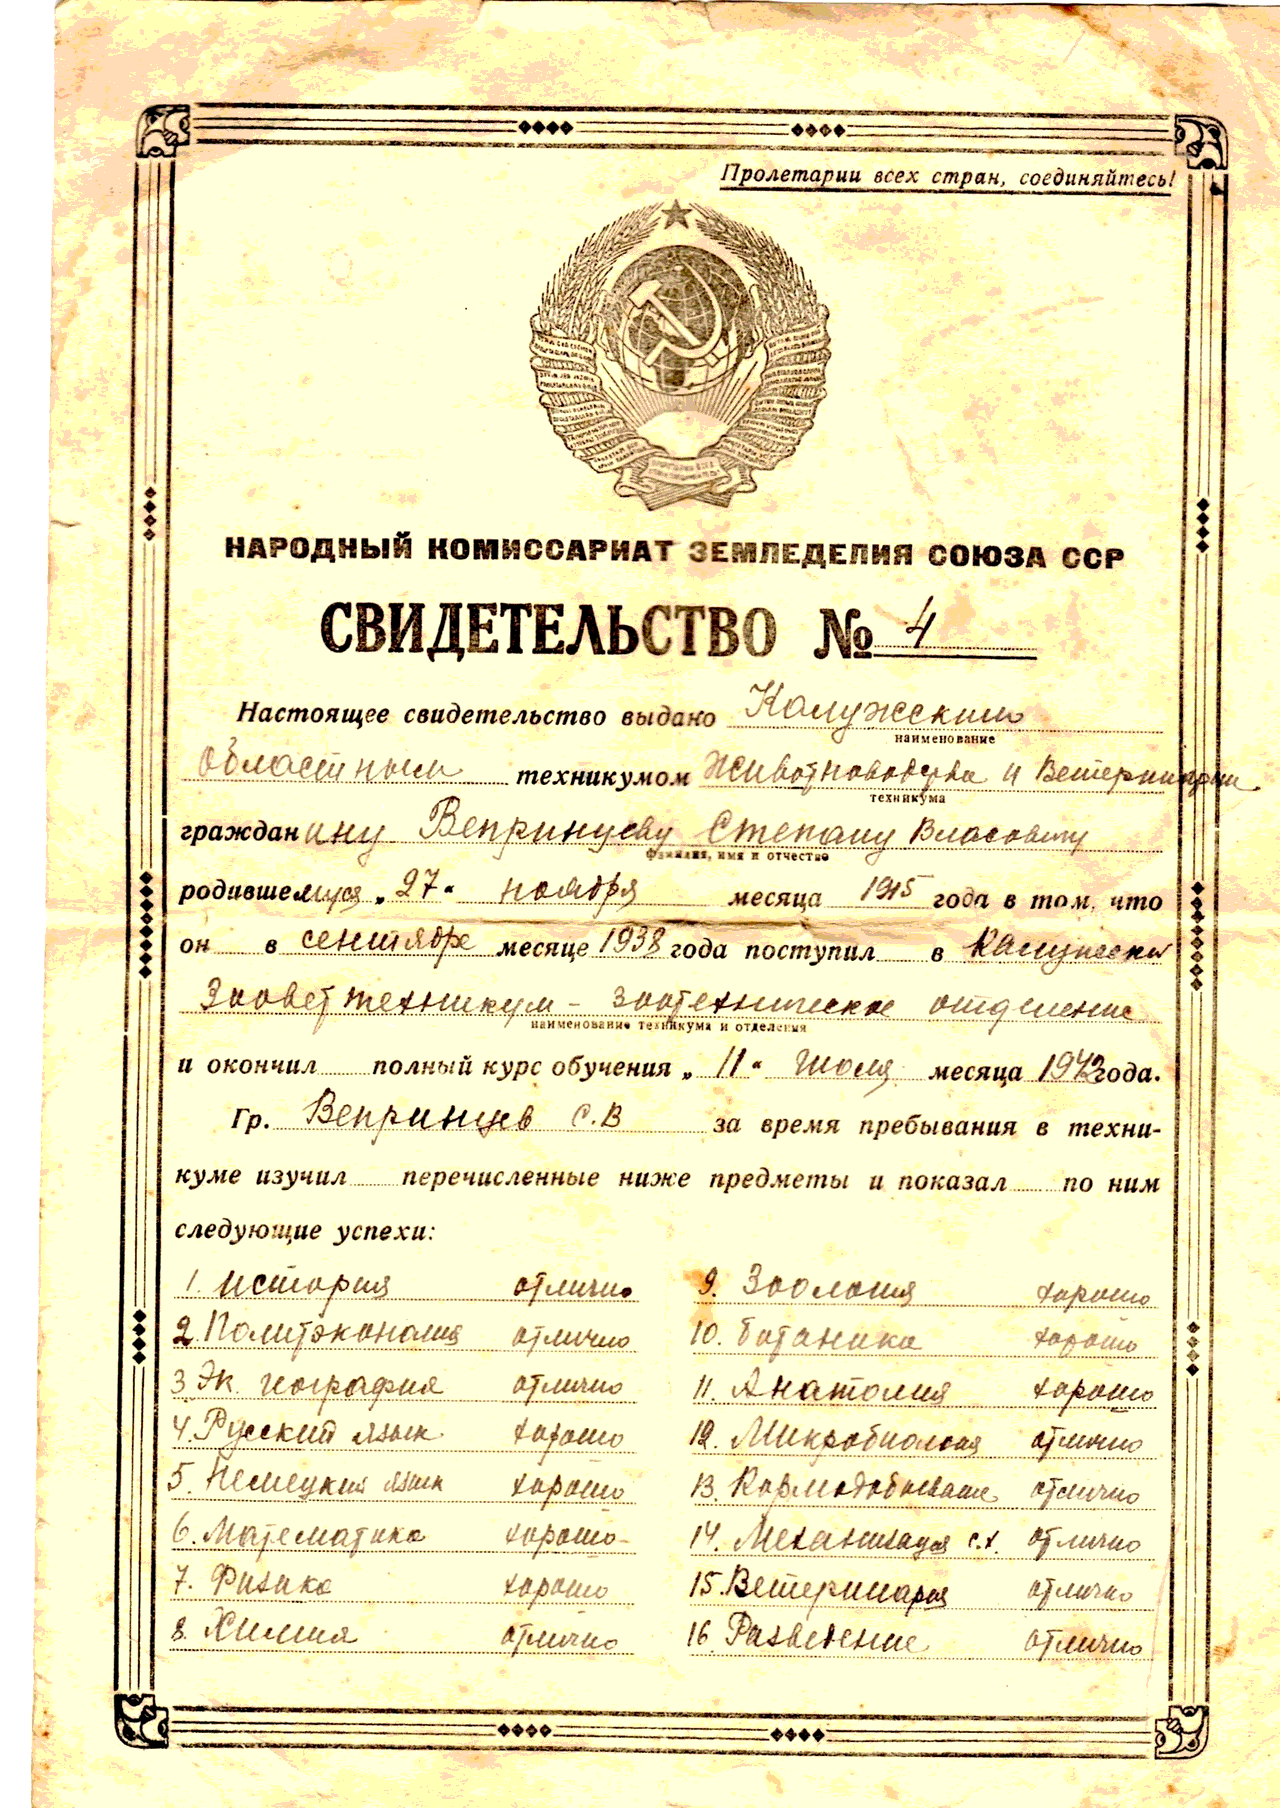 Пролетарии всех стран, соединяйтесь!
НАРОДНЫЙ КОМИССАРИАТ ЗЕМЛЕДЕЛИЯ СОЮЗА ССР
СВИДЕТЕЛЬСТВО № 4
Настоящее свидетельство выдано Калужским
наименование
Областным техникумом Животноводства и Ветеринарии
техникума
гражданину Вепринцеву Степану Власовичу
фамилия, имя и отчество
родившемуся „27“ ноября месяца 1915 года в том, что
он в сентябре месяце 1938 года поступил в Калужский
Зооветтехникум – зоотехническое отделение
наименование техникума и отделения
и окончил полный курс обучения „11“ июля месяца 1942 года.
Гр. Вепринцев С.В за время пребывания в техни-
куме изучил перечисленные ниже предметы и показал по ним
следующие успехи:
1. История отлично
2. Политэкономия отлично
3 Эк. география отлично
4. Русский язык хорошо
5. Немецкий язык хорошо
6. Математика хорошо
7. Физика хорошо
8. Химия отлично
9. Зоология хорошо
10. Ботаника хорошо
11. Анатомия хорошо
12. Микробиология отлично
13. Кормодобывание отлично
14. Механизация с.х. отлично
15. Ветеринария отлично
16. Разведение отлично